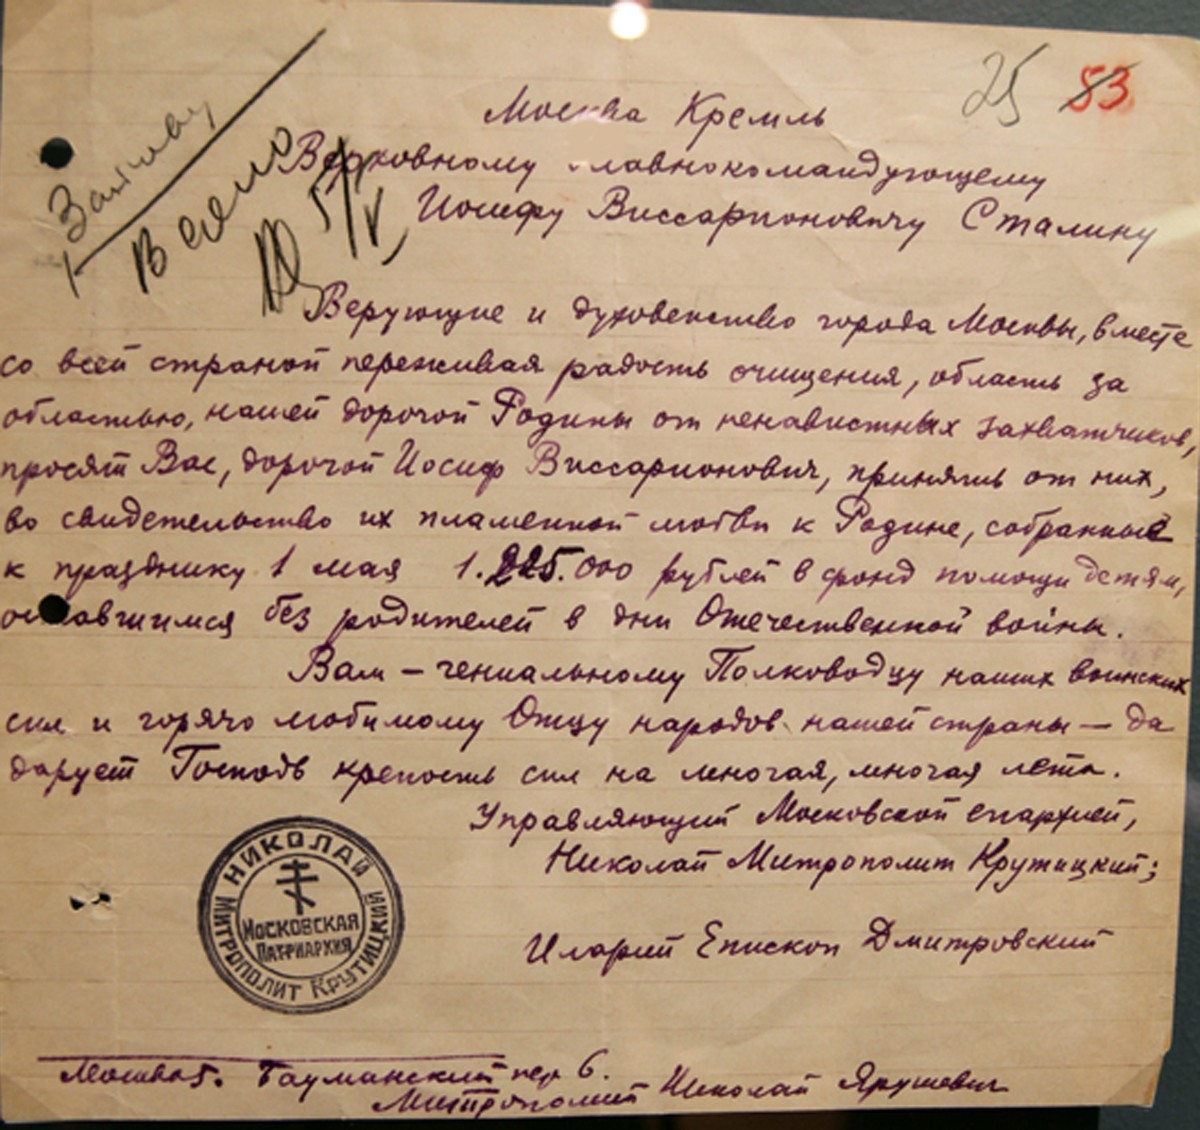 25 53
Москва Кремль
Верховному Главнокомандующему
Иосифу Виссарионовичу Сталину
Верующие и духовенство города Москвы, вместе
со всей страной переживая радость очищения, область за
областью, нашей дорогой Родины от ненавистных захватчиков,
просят Вас, дорогой Иосиф Виссарионович, принять от них,
во свидетельство их пламенной любви к Родине, собранные
к празднику 1 мая 1.225.000 рублей в фонд помощи детям,
оставшимся без родителей в дни Отечественной войны.
Вам – гениальному Полководцу наших воинских
сил и горячо любимому Отцу народов нашей страны – да
дарует Господь крепость сил на многая, многая лета.
Управляющий Московской епархией,
Николай Митрополит Крутицкий;
Иларий Епископ Дмитровский
НИКОЛАЙ
МИТРОПОЛИТ КРУТИЦКИЙ
МОСКОВСКАЯ
ПАТРИАРХИЯ
Москва 5. Бауманский пер 6.
Митрополит Николай Ярушевич